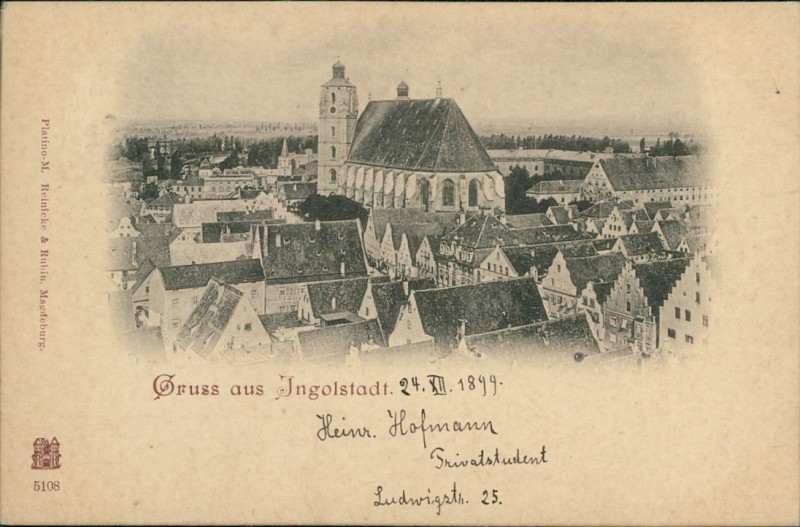 Platino-M. Reinicke & Rubin, Magdeburg.
Gruss aus Ingolstadt. 24. XII. 1899.
Heinr. Hofmann
Privatstudent
Ludwigstr. 25.
5108